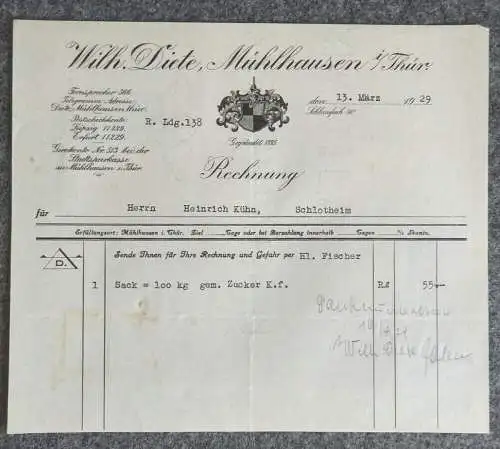 Wilh. Diete, Mühlhausen i/Thür.
Fernsprecher 566
Telegramm-Adresse:
Diete, Mühlhausenthür.
Postscheckkonto:
Leipzig 11229.
Erfurt 11229.
Girokonto Nr. 513 bei der
Stadtsparkasse
zu Mühlhausen i. Thür.
R. Ldg.138
den 13. März 1929
Gegründet 1895
Rechnung
für Herrn Heinrich Kühn, Schlotheim
Erfüllungsort: Mühlhausen i. Thür. Ziel Tage oder bei Barzahlung innerhalb Tagen % Skonto.
D.
Sende Ihnen für Ihre Rechnung und Gefahr per Hl. Fischer
1 Sack = 100 kg gem. Zucker K.f. 55.—
Wilh Diete